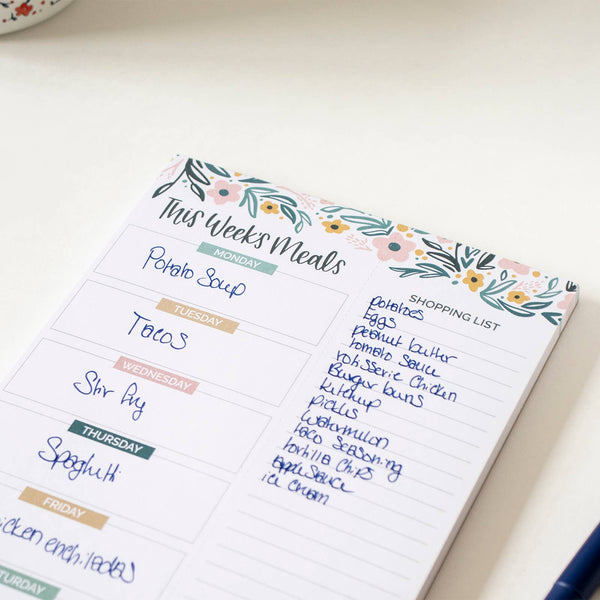 This Week's Meals
MONDAY
Potato Soup
TUESDAY
Tacos
WEDNESDAY
Stir fry
THURSDAY
Spaghetti
FRIDAY
chicken enchiladas
SATURDAY
SHOPPING LIST
potatoes
Eggs
peanut butter
tomato sauce
rotisserie chicken
Burger buns
ketchup
pickles
watermelon
taco seasoning
tortilla chips
apple sauce
ice cream